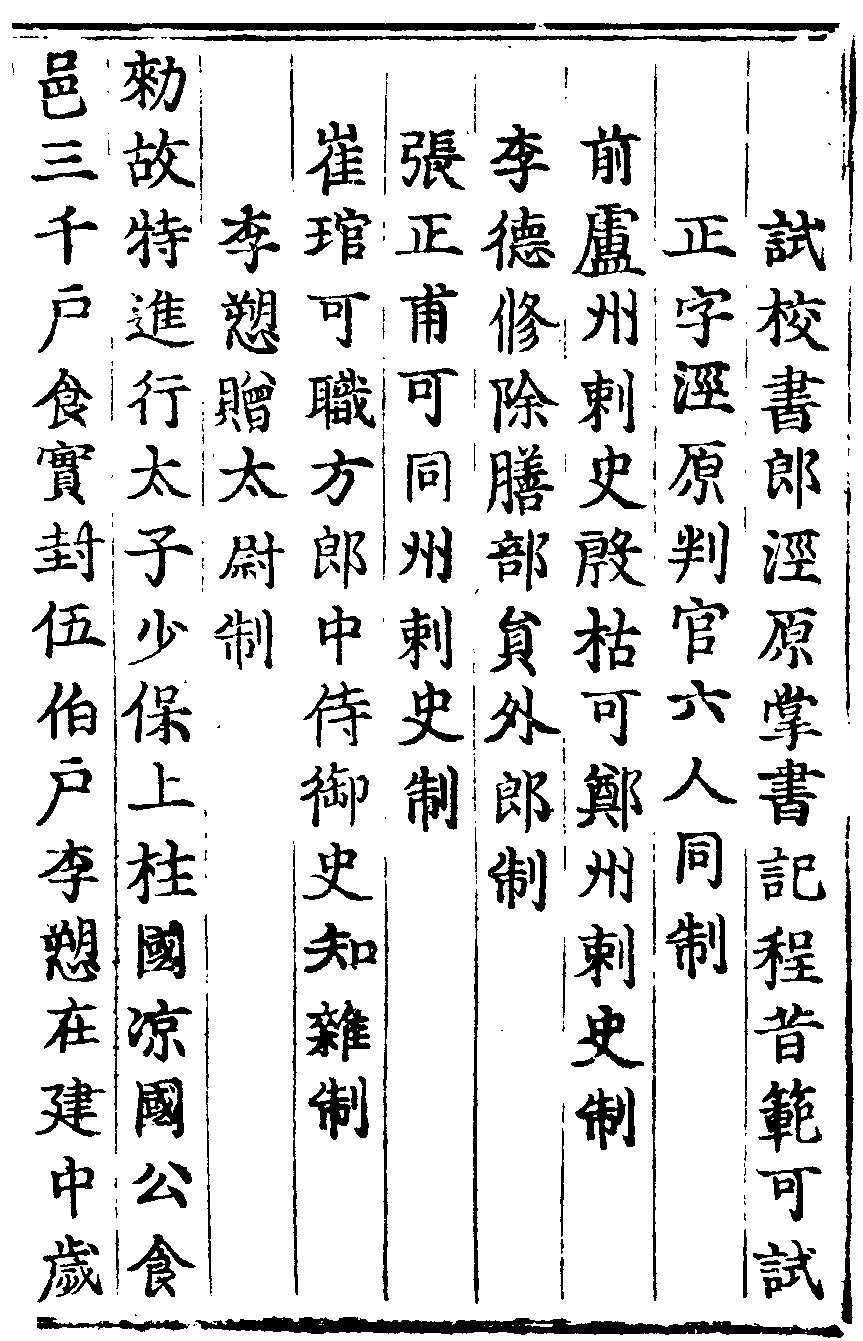 試校書郎涇原掌書記程昔範可試
正字涇原判官六人同制
前盧州刺史殷祐可鄭州刺史制
李德修除膳部貟外郎制
張正甫可同州刺史制
崔琯可職方郎中侍御史知雜制
李愬贈太尉制
勑故特進行太子少保上柱國凉國公食
邑三千户食實封伍伯户李愬在建中歲